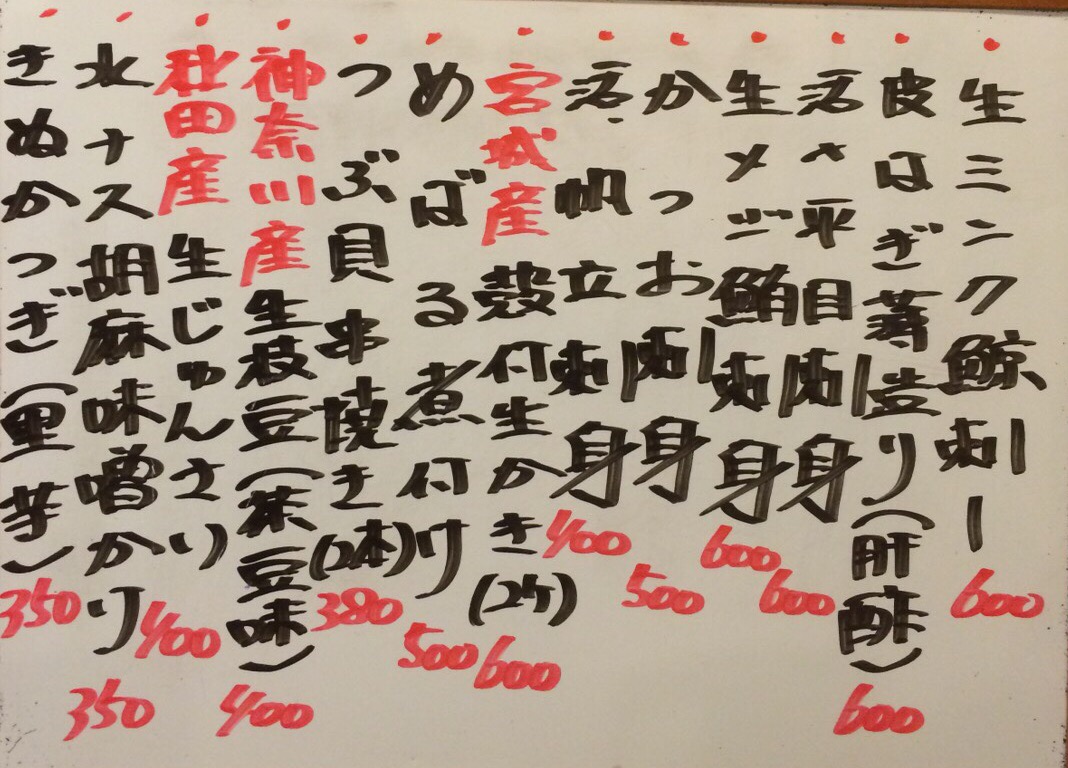 生ミンク鯨刺し 600
皮はぎ薄造り(肝酢) 600
活〆平目刺身 600
生メジ鮪刺身 600
かつお刺身 500
活帆立刺身 400
宮城産殻付生かき(2ヶ) 600
めばる煮付け 500
つぶ貝串焼き(2本) 380
神奈川産生枝豆(茶豆味) 400
秋田産生じゅんさい 400
水ナス胡麻味噌かけ 350
きぬかつぎ(里芋) 350